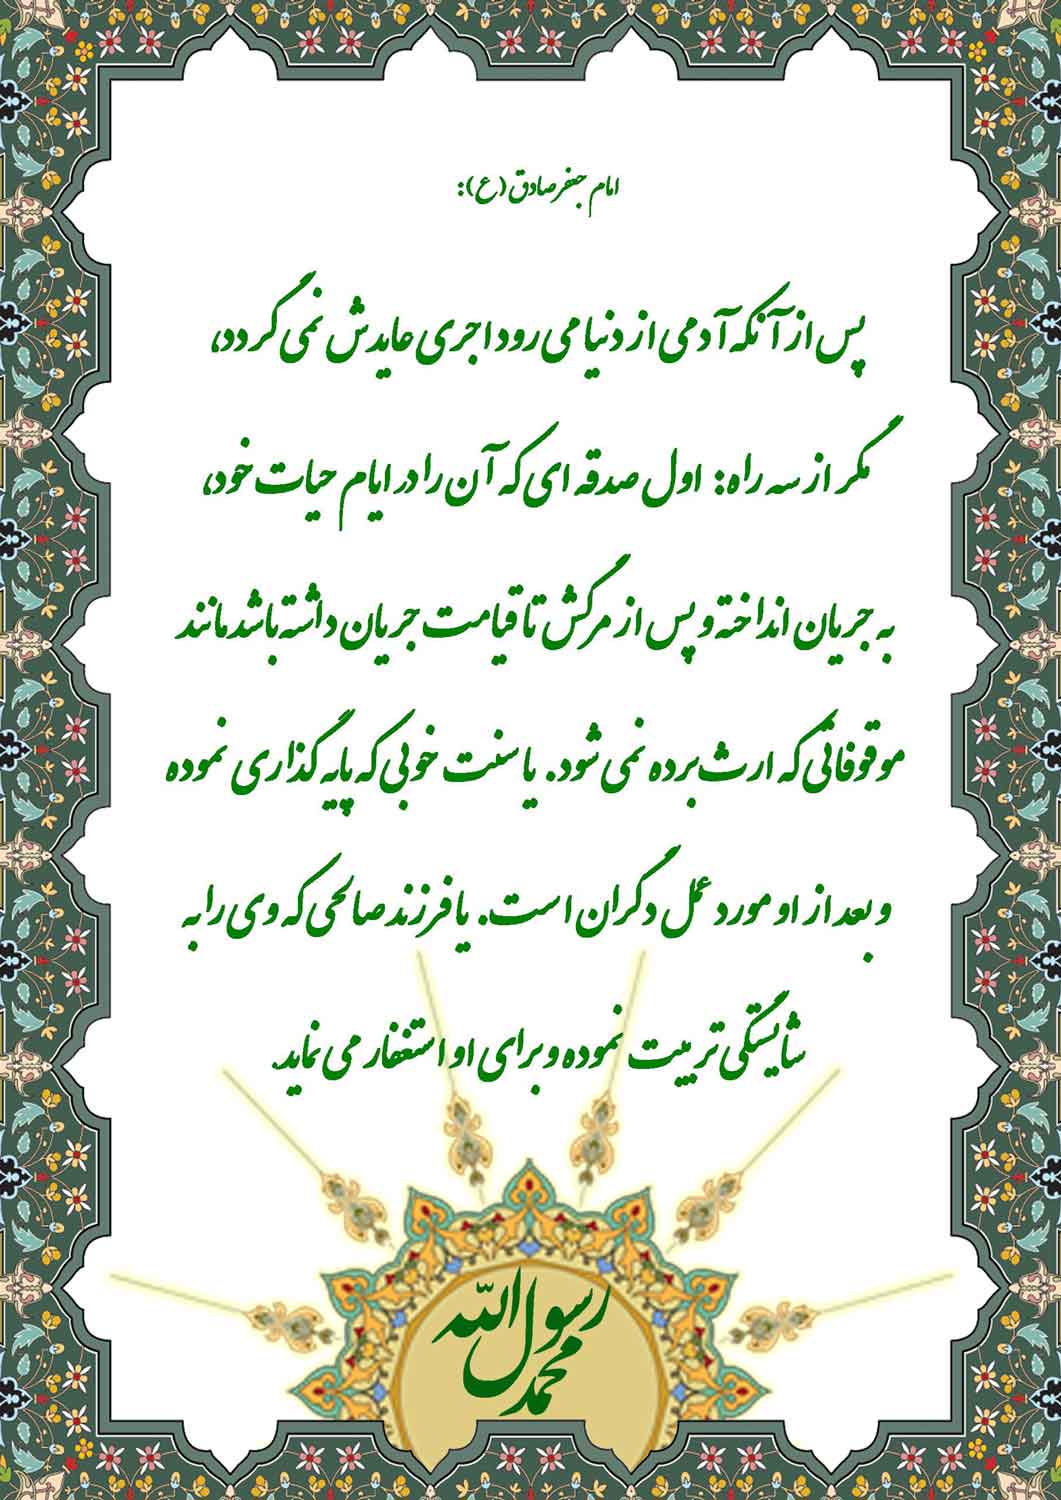 امام جعفر صادق (ع):
پس از آنکه آدمی از دنیا می رود اجری عایدش نمی گردد،
مگر از سه راه: اول صدقه ای که آن را در ایام حیات خود،
به جریان انداخته و پس از مرگش تا قیامت جریان داشته باشد مانند
موقوفاتی که ارث برده نمی شود. یا سنت خوبی که پایه گذاری نموده
و بعد از او مورد عمل دگران است. یا فرزند صالحی که وی را به
شایستگی تربیت نموده و برای او استغفار می نماید.
محمد رسول الله